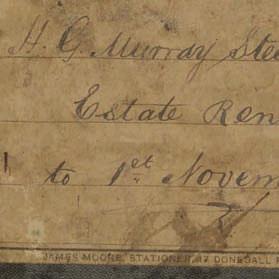 H. G. Murray Stee
Estate Ren
to 1st Novem
JAMES MOORE, STATIONER, 17 DONEGALL